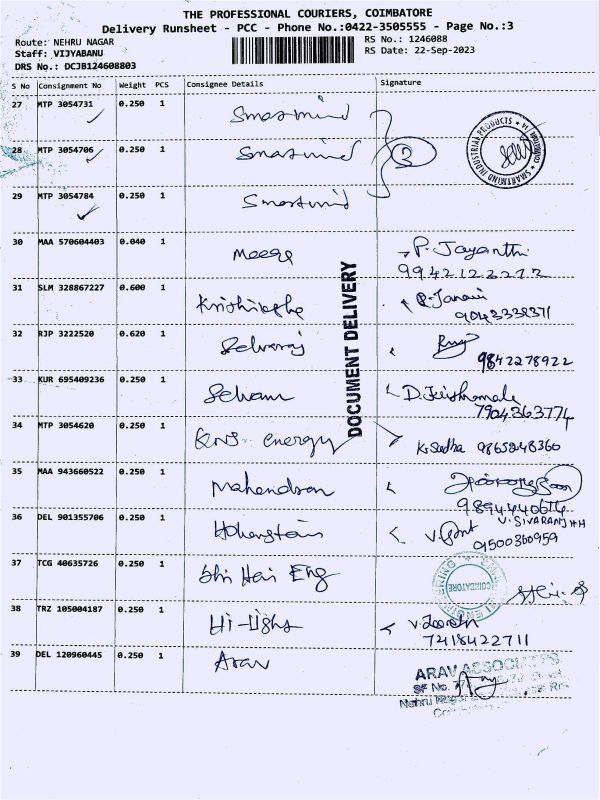 THE PROFESSIONAL COURIERS, COIMBATORE
Delivery Runsheet - PCC - Phone No.:0422-3505555 - Page No.:3
Route: NEHRU NAGAR
Staff: VIJYABANU
DRS No.: DCJB124608803
RS No.: 1246088
RS Date: 22-Sep-2023
S No Consignment No Weight PCS Consignee Details Signature
27 MTP 3054731 0.250 1 Smartmind
28 MTP 3054706 0.250 1 Smartmind 3
29 MTP 3054784 0.250 1 Smartmind
SMARTMIND INDUSTRIAL PRODUCTS
30 MAA 570604403 0.040 1 Meera P. Jayanthi
9942122272
31 SLM 328867227 0.600 1 P. Janani
9043338371
32 RJP 3222520 0.620 1 Selvaraj
9842278922
33 KUR 695409236 0.250 1 Selvam
7904363774
34 MTP 3054620 0.250 1 KNS energy K. Sudha 9865248360
35 MAA 943660522 0.250 1 Mahendran
9894440614
36 DEL 901355706 0.250 1 V. SIVARANJHH
9500360959
37 TCG 40635726 0.250 1 Shri Hari Eng
COIMBATORE
38 TRZ 105004187 0.250 1 Hi-Lights
7418422711
39 DEL 120960445 0.250 1 Arav
ARAV ASSOCIATES
SF No.
Nehru Nagar
DOCUMENT DELIVERY